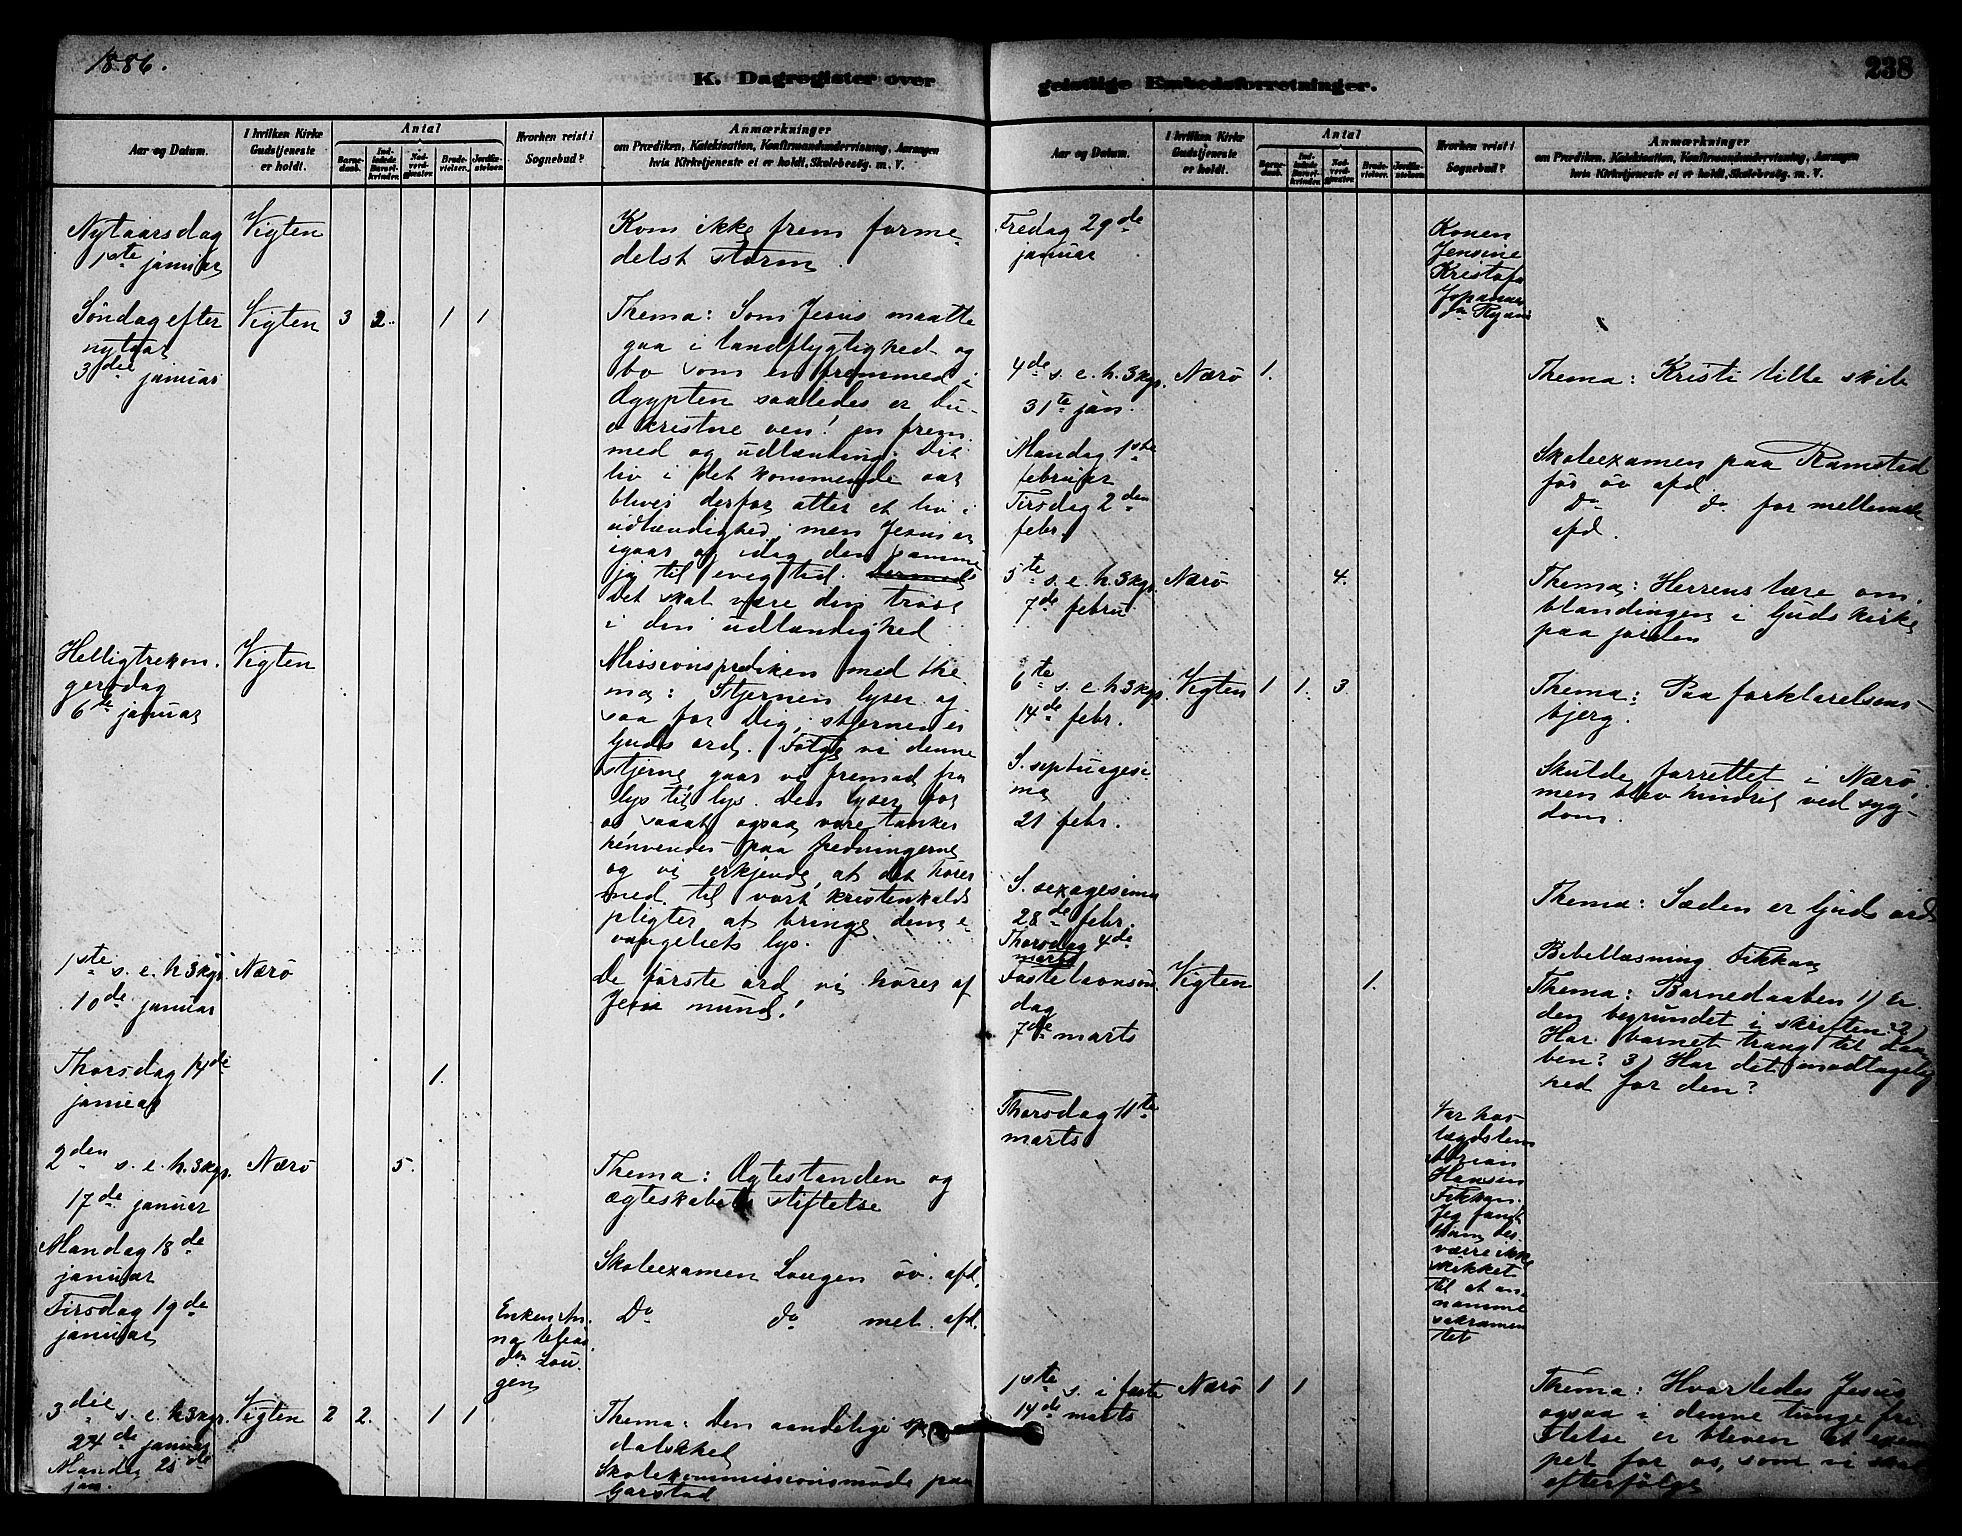 1886.
K. Dagregister over
Aar og Datum.
I hvilken Kirke
Gudstjeneste
er holdt.
Antal
Barne-
daab.
Ind-
ledede
Barsel-
kvinder.
Nad-
verd-
gjæster.
Brude-
vielser.
Jordfæ-
stelser.
Hvorhen reist i
Sognebud?
Anmærkninger
om Prædiken, Katekisation, Konfirmandundervisning, Aarsagen
hvis Kirketjeneste ei er holdt, Skolebesøg. m. V.
Nytaarsdag
1ste januar
Vigten
Kom ikke frem forme-
delst storm
Søndag efter
nytaar
3die januar
Vigten 3 2. 1 1
Thema: Som Jesus maatte
gaa i landflygtighed og
bo som en fremmed i
Ægypten saaledes er du
o kristne ven! en frem-
med og udlænding. Dit
liv i det kommende aar
bliver derfor atter et liv i
udlændighed, men Jesus er
igaar og idag den samme
ja til evig tid. Dermed
Det skal være din trøst
i din udlændighed
Helligtrekon-
gersdag
6te januar
Vigten
Missionsprediken med the
ma: Stjernen lyser og
saa for Dig, stjernen er
Guds ord. Følge vi denne
stjerne gaar vi fremad fra
lys til lys. Den lyser for
os saaat ogsaa vore tanker
henvendes paa hedningerne
og vi erkjende, at det hører
med til vort kristenkalds
pligter at bringe dem e-
vangeliets lys.
1ste s. e. h3kgr
10de januar
Nærø
De første ord vi hører af
Jesu mund!
Thorsdag 14de
januar
1.
2den s. e. h.3kgr.
17de januar
Nærø 5.
Thema: Ægtestanden og
ægteskabets stiftelse
Mandag 18de
januar
Skoleexamen Lougen øv. afd.
Tirsdag 19de
januar
Enken An-
na Elias
dtr Lou-
gen
Do do mel. afd.
3die s. e. h3kgr.
24de januar
Vigten 2 2. 1 1
Thema: Den aandelige sp
dalskhed
Mandag 25de
jan.
Skolekommissionsmøde paa
Garstad
geistlige Embedsforretninger.
238
Aar og Datum.
I hvilken Kirke
Gudstjeneste
er holdt.
Antal
Barne-
daab.
Ind-
ledede
Barsel-
kvinder.
Nad-
verd-
gjæster.
Brude-
vielser.
Jordfæ-
stelser.
Hvorhen reist i
Sognebud?
Anmærkninger
om Prædiken, Katekisation, Konfirmandundervisning, Aarsagen
hvis Kirketjeneste ei er holdt, Skolebesøg. m. V.
Fredag 29de
januar
Konen
Jensine
Kristofa
Johannes
dtr
4de s. e. h. 3kgr.
31te jan.
Nærø 1.
Thema: Kristi lille skib
Mandag 1ste
februar
Skoleexamen paa Ramstad
for øv afd
Tirsdag 2den
febr.
Do do for mellemste
afd.
5te s. e. h. 3kgr
7de febru
Nærø 4.
Thema: Herrens lære om
blandingen i Guds kirke
paa jorden
6te s. e h3kgr
14de febr.
Vigten 1 1. 3.
Thema: Paa forklarelsens-
bjerg.
S. septuagesi
ma
21 febr.
Skulde forrettet i Nærø,
men blev hindret ved syg-
dom.
S. sexagesima
28de febr.
Thema: Sæden er Guds ord
Thorsdag 4de
marts
Bibellæsning Fikkan
Fastelavnssøn
dag
7de marts
Vigten 1.
Thema: Barnedaaben 1) Er
den begrundet i skriften? 2)
Har barnet trang til daa-
ben? 3) Har det modtagelig
hed for den?
Thorsdag 11te
marts
Var hos
lægdslem
Adrian
Hansen
Fikkan.
Jeg fandt
ham des-
værre ikke
skikket
til at an-
namme
sakramen
tet
1ste s. i faste
14de marts
Nærø 1 1
Thema: Hvorledes Jesus
ogsaa i denne tunge fri-
stelse er bleven et exem
pel for os, som vi skal
efterfølge